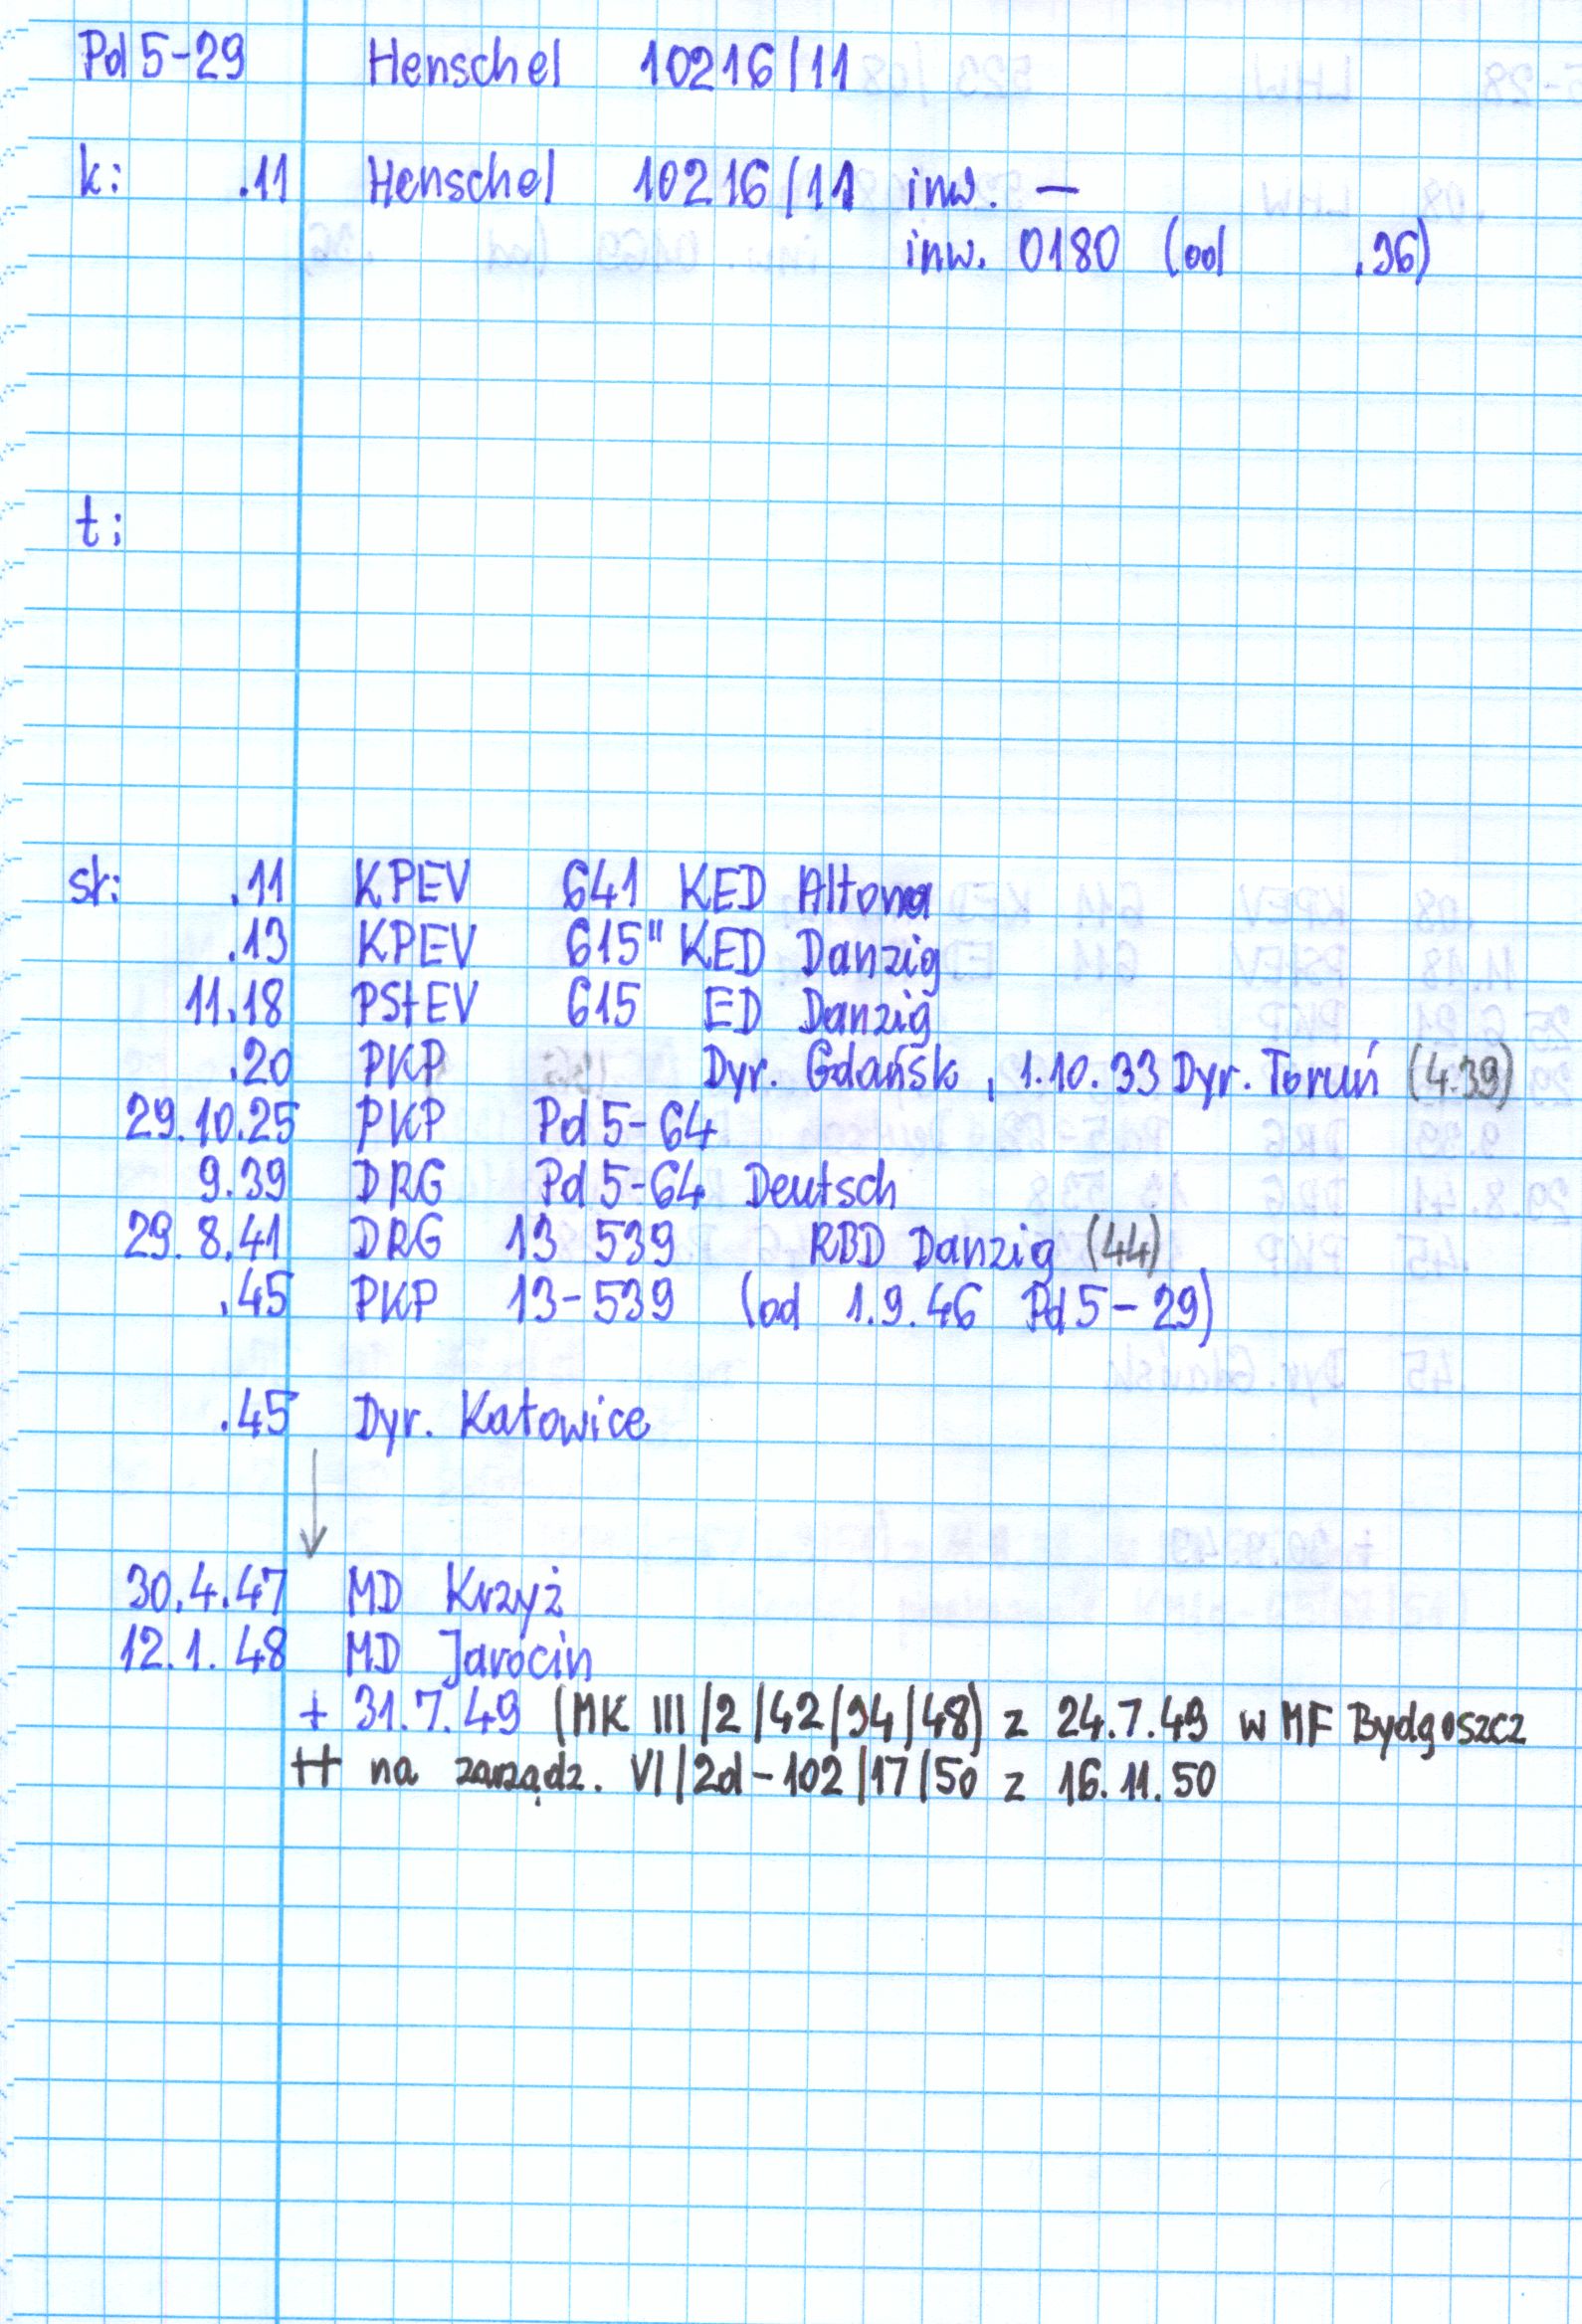 Pd 5-29 Henschel 10216/11
k: .11 Henschel 10216/11 inw. —
inw. 0180 (od .36)
t:
sk: .11 KPEV 641 KED Altona
.13 KPEV 615" KED Danzig
11.18 PStEV 615 ED Danzig
.20 PKP Dyr. Gdańsk, 1.10.33 Dyr. Toruń (4.39)
29.10.25 PKP Pd 5-64
9.39 DRG Pd 5-64 Deutsch
29.8.41 DRG 13 539 RBD Danzig (44)
.45 PKP 13-539 (od 1.9.46 Pd 5-29)
.45 Dyr. Katowice
↓
30.4.47 MD Krzyż
12.1.48 MD Jarocin
+ 31.7.49 (MK III/2/42/94/48) z 24.7.49 w MF Bydgoszcz
++ na zarządz. VI/2d-102/17/50 z 16.11.50